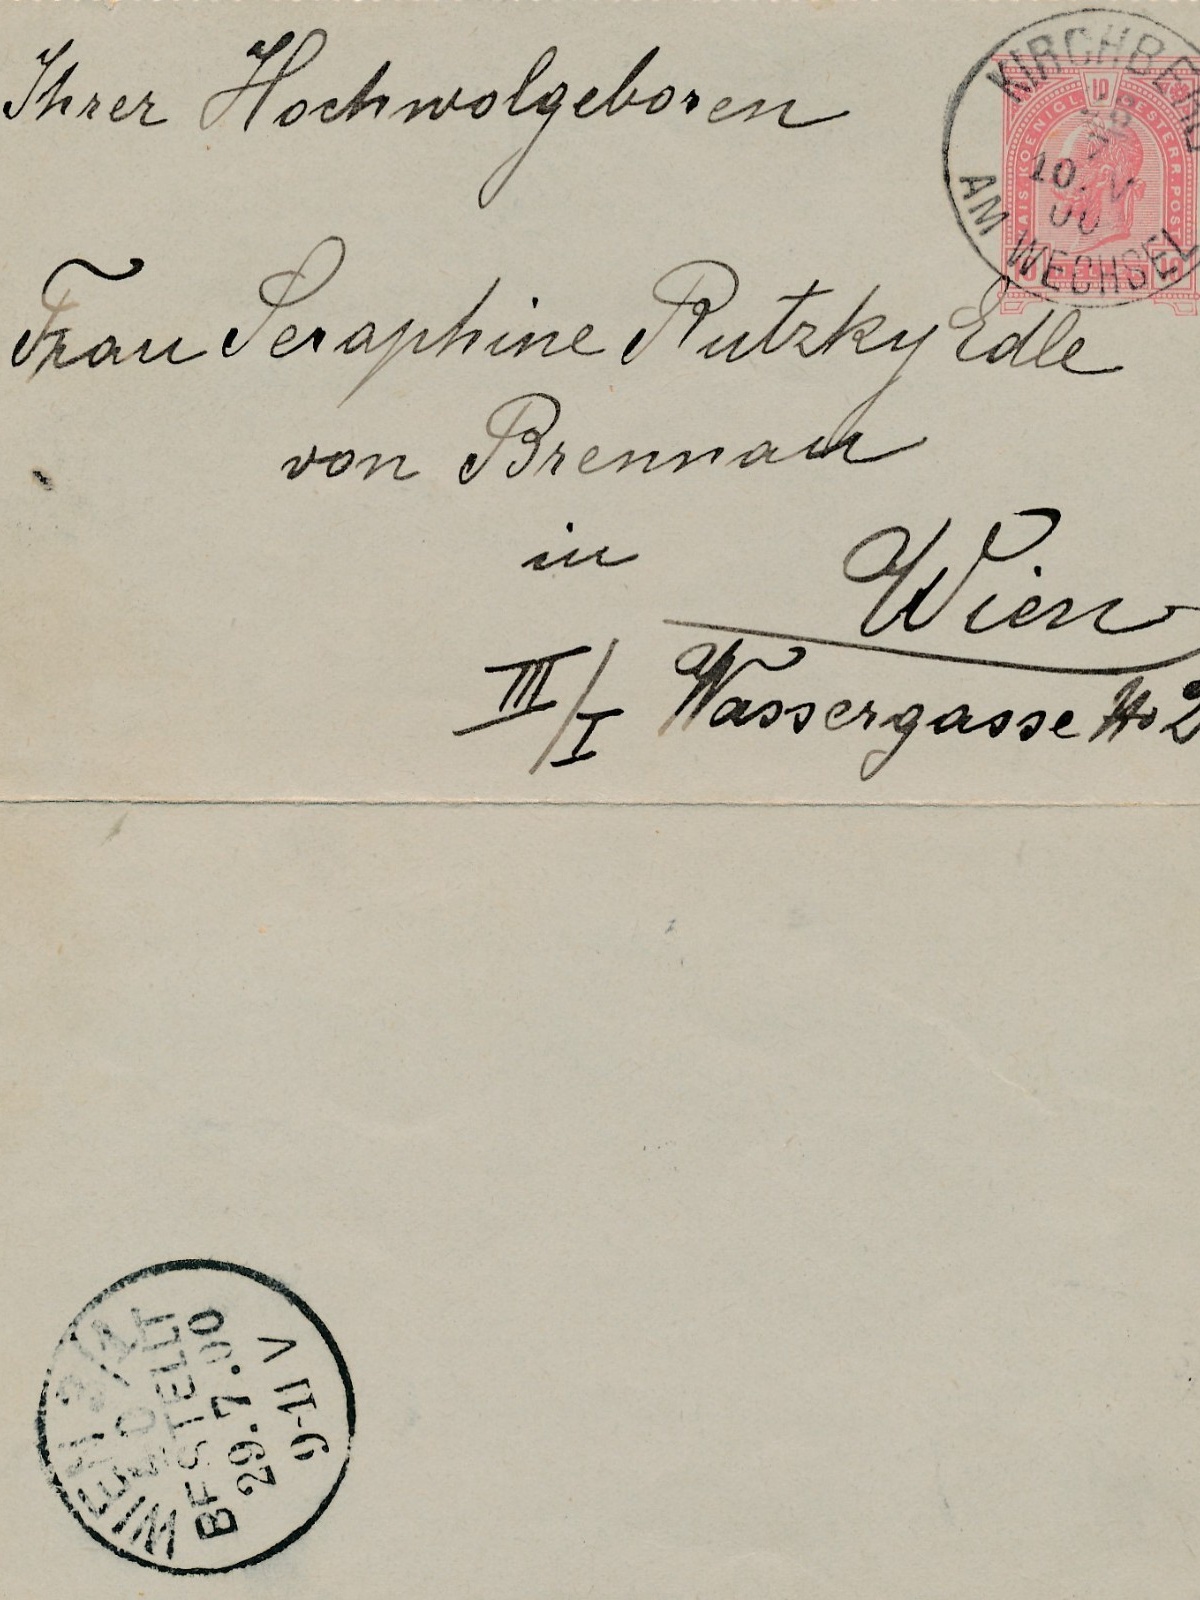 Ihrer Hochwolgeboren
KIRCHBERG
AM WECHSEL
10. V
00
10
KOENIGL
ESTERR. POST
10
Frau Seraphine Rutzky Edle
von Brennau
in Wien
III/I Wassergasse No 2
WIEN
BESTELLT
29.7.00
9-11 V